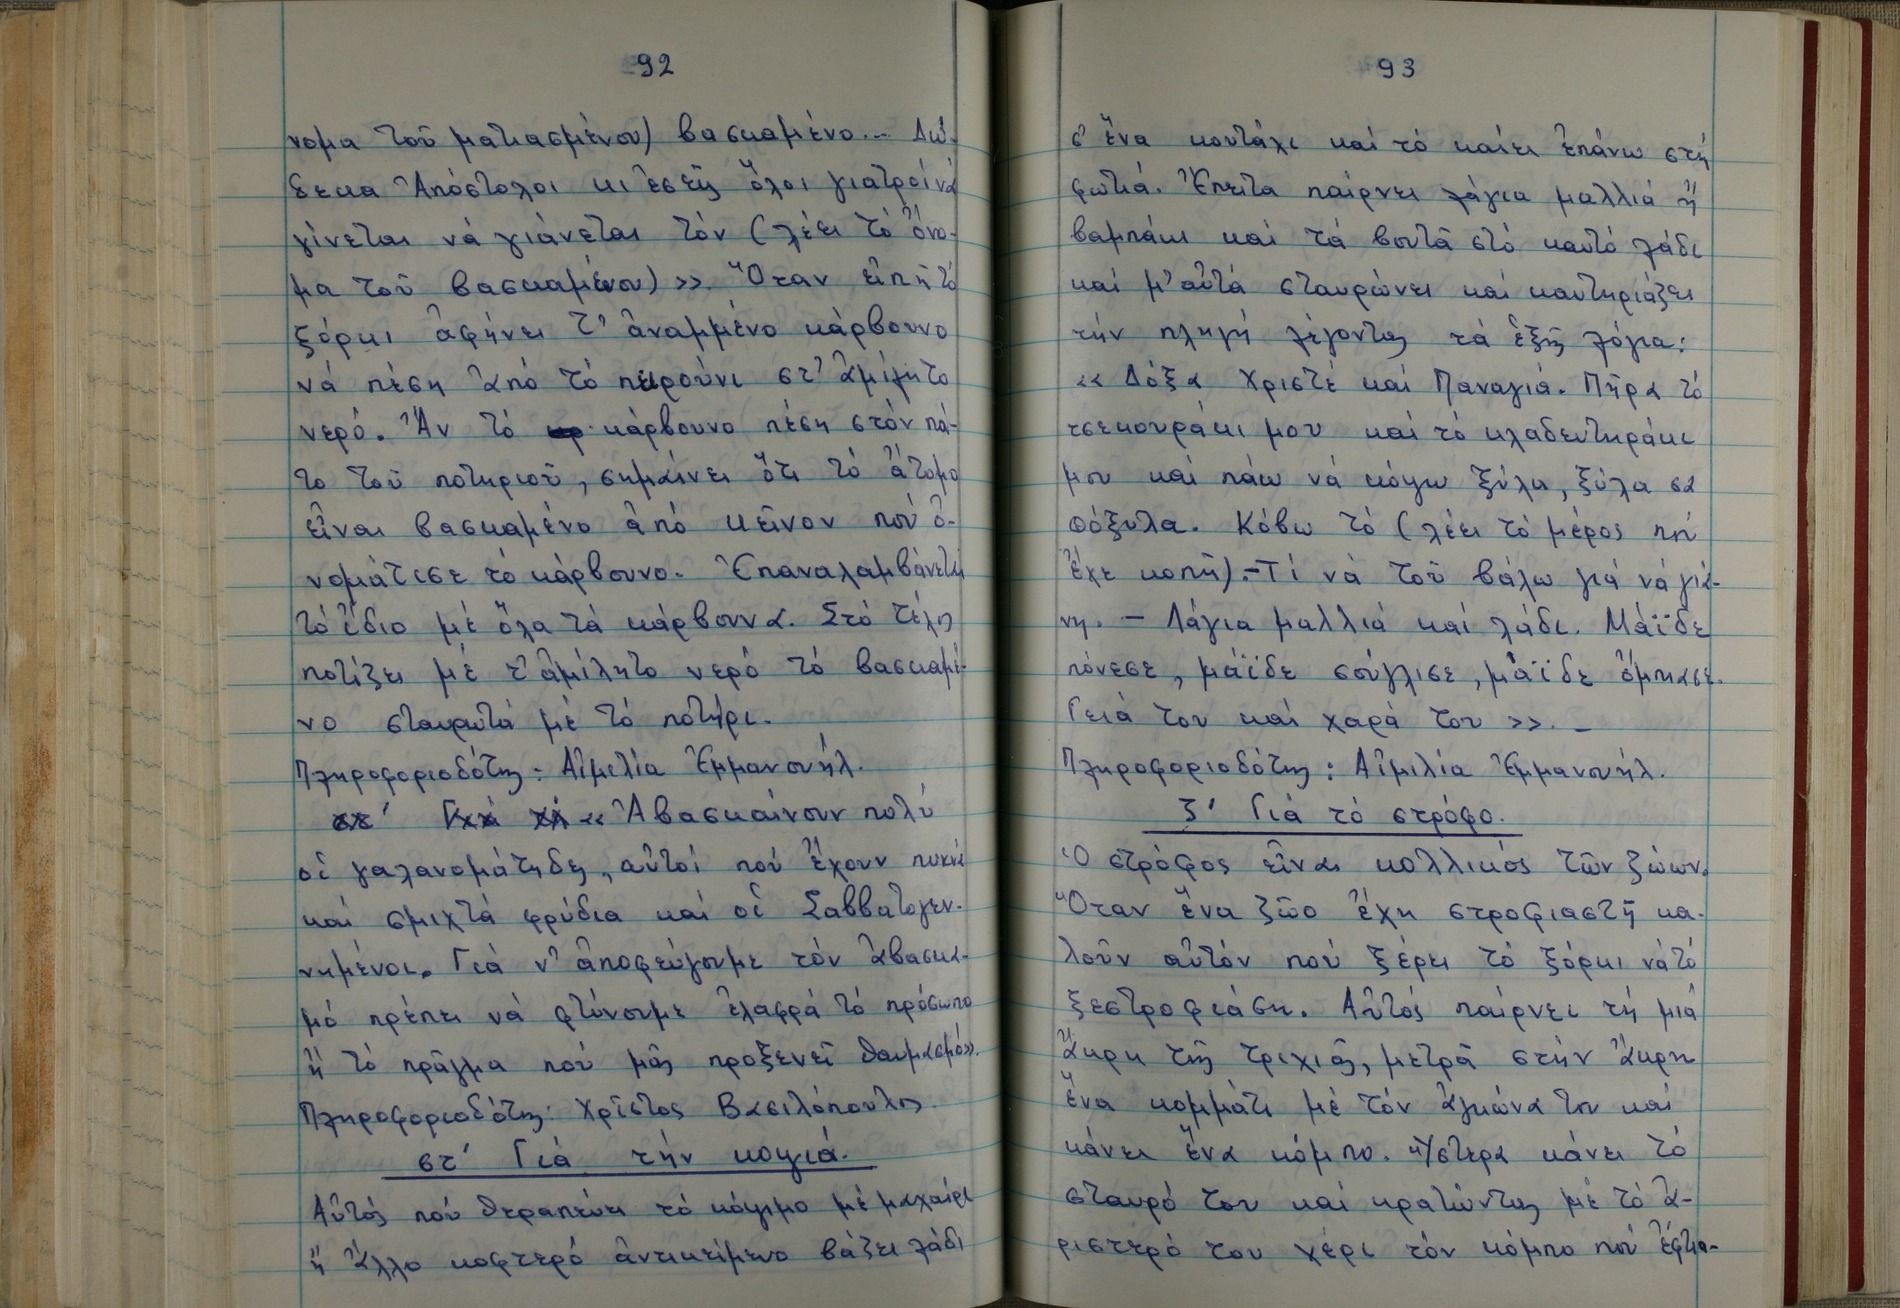 92
νομα τοῦ ματιασμένου) βασκαμένο... Δώ-
δεκα Ἀπόστολοι κι ἐσεῖς ὅλοι γιατροί νά
γίνεται νά γιάνεται τόν (λέει τό ὄνο-
μα τοῦ βασκαμένου)». Ὅταν εἰπῆ τό
ξόρκι ἀφήνει τ' ἀναμμένο κάρβουνο
νά πέση ἀπό τό πειρούνι στ' ἀμίλητο
νερό. Ἄν τό κάρβουνο πέση στόν πά-
το τοῦ ποτηριοῦ, σημαίνει ὅτι τό ἄτομο
εἶναι βασκαμένο ἀπό κεῖνον πού ὀ-
νομάτισε τό κάρβουνο. Ἐπαναλαμβάνεται
τό ἴδιο μέ ὅλα τά κάρβουνα. Στό τέλος
ποτίζει μέ τ' ἀμίλητο νερό τό βασκαμέ-
νο σταυρωτά μέ τό ποτήρι.
Πληροφοριοδότης: Αἰμιλία Ἐμμανουήλ.
« Ἀβασκαίνουν πολύ
οἱ γαλανομάτηδες, αὐτοί πού ἔχουν πυκνά
καί σμιχτά φρύδια καί οἱ Σαββατογεν-
νημένοι. Γιά ν' ἀποφεύγουμε τόν ἀβασκα-
μό πρέπει νά φτύνουμε ἐλαφρά τό πρόσωπο
ἤ τό πρᾶγμα πού μᾶς προξενεῖ θαυμασμό».
Πληροφοριοδότης: Χρῖστος Βασιλόπουλος.
στ' Γιά τήν κοψιά.
Αὐτός πού θεραπεύει τό κόψιμο μέ μαχαίρι
ἤ ἄλλο κοφτερό ἀντικείμενο βάζει λάδι
93
σ' ἕνα κουτάλι καί τό καίει ἐπάνω στή
φωτιά. Ἔπειτα παίρνει λάγια μαλλιά ἤ
βαμπάκι καί τά βουτᾶ στό καυτό λάδι
καί μ' αὐτά σταυρώνει καί καυτηριάζει
τήν πληγή λέγοντας τά ἑξῆς λόγια:
« Δόξα Χριστέ καί Παναγιά. Πῆρα τό
τσεκουράκι μου καί τό κλαδευτηράκι
μου καί πάω νά κόψω ξύλα, ξύλα σα
φόξυλα. Κόβω τό (λέει τό μέρος πού
ἔχε κοπῆ).- Τί νά τοῦ βάλω γιά νά γιά-
νη. - Λάγια μαλλιά καί λάδι. Μάϊδε
πόνεσε, μάϊδε σούγλισε, μάϊδε ὄμπιασε.
Γειά του καί χαρά του ». -
Πληροφοριοδότης: Αἰμιλία Ἐμμανουήλ.
ζ' Γιά τό στρόφο.
Ὁ στρόφος εἶναι κολλικός τῶν ζώων.
Ὅταν ἕνα ζῶο ἔχη στροφιαστῆ κα-
λοῦν αὐτόν πού ξέρει τό ξόρκι νά τό
ξεστροφιάση. Αὐτός παίρνει τή μιά
ἄκρη τῆς τριχιᾶς, μετρᾶ στήν ἄκρη
ἕνα κομμάτι μέ τόν ἀγκώνα του καί
κάνει ἕνα κόμπο. Ὕστερα κάνει τό
σταυρό του καί κρατώντας μέ τό ἀ-
ριστερό του χέρι τόν κόμπο πού ἔφτια-